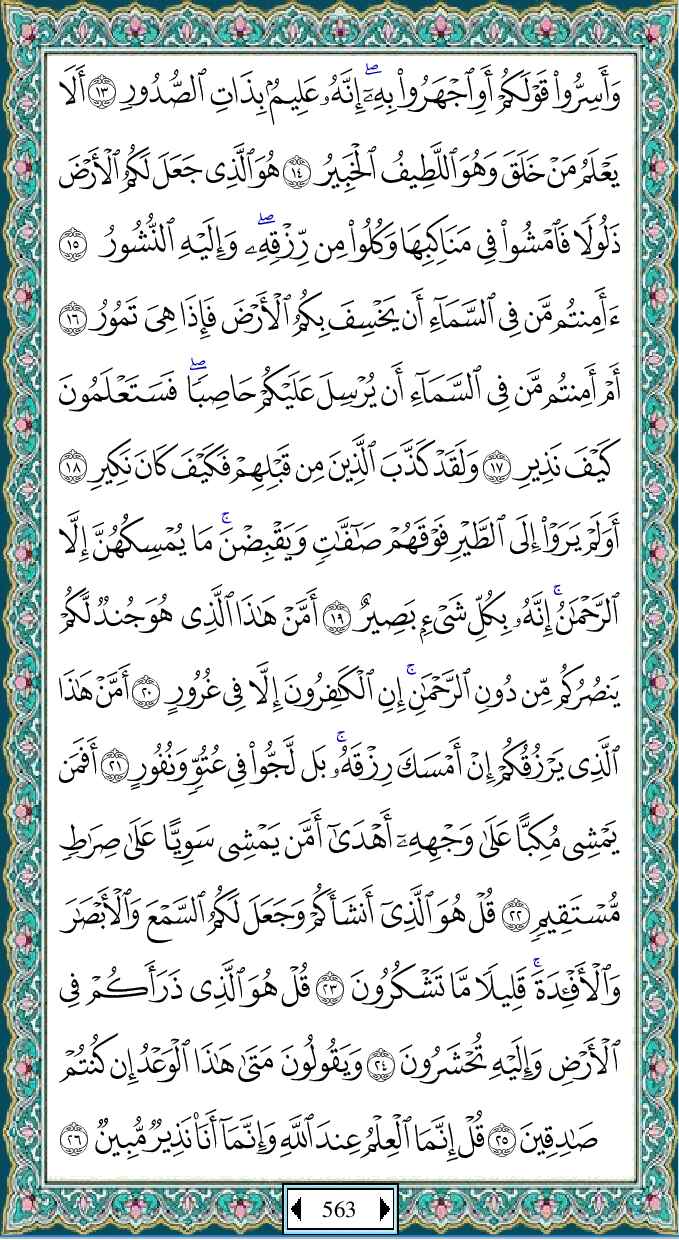 وَأَسِرُّوا۟ قَوْلَكُمْ أَوِ ٱجْهَرُوا۟ بِهِۦٓ ۖ إِنَّهُۥ عَلِيمٌۢ بِذَاتِ ٱلصُّدُورِ ١٣ أَلَا
يَعْلَمُ مَنْ خَلَقَ وَهُوَ ٱللَّطِيفُ ٱلْخَبِيرُ ١٤ هُوَ ٱلَّذِى جَعَلَ لَكُمُ ٱلْأَرْضَ
ذَلُولًا فَٱمْشُوا۟ فِى مَنَاكِبِهَا وَكُلُوا۟ مِن رِّزْقِهِۦ ۖ وَإِلَيْهِ ٱلنُّشُورُ ١٥
ءَأَمِنتُم مَّن فِى ٱلسَّمَآءِ أَن يَخْسِفَ بِكُمُ ٱلْأَرْضَ فَإِذَا هِىَ تَمُورُ ١٦
أَمْ أَمِنتُم مَّن فِى ٱلسَّمَآءِ أَن يُرْسِلَ عَلَيْكُمْ حَاصِبًا ۖ فَسَتَعْلَمُونَ
كَيْفَ نَذِيرِ ١٧ وَلَقَدْ كَذَّبَ ٱلَّذِينَ مِن قَبْلِهِمْ فَكَيْفَ كَانَ نَكِيرِ ١٨
أَوَلَمْ يَرَوْا۟ إِلَى ٱلطَّيْرِ فَوْقَهُمْ صَٰٓفَّٰتٍ وَيَقْبِضْنَ ۚ مَا يُمْسِكُهُنَّ إِلَّا
ٱلرَّحْمَٰنُ ۚ إِنَّهُۥ بِكُلِّ شَىْءٍۭ بَصِيرٌ ١٩ أَمَّنْ هَٰذَا ٱلَّذِى هُوَ جُندٌ لَّكُمْ
يَنصُرُكُم مِّن دُونِ ٱلرَّحْمَٰنِ ۚ إِنِ ٱلْكَٰفِرُونَ إِلَّا فِى غُرُورٍ ٢٠ أَمَّنْ هَٰذَا
ٱلَّذِى يَرْزُقُكُمْ إِنْ أَمْسَكَ رِزْقَهُۥ ۚ بَل لَّجُّوا۟ فِى عُتُوٍّ وَنُفُورٍ ٢١ أَفَمَن
يَمْشِى مُكِبًّا عَلَىٰ وَجْهِهِۦٓ أَهْدَىٰٓ أَمَّن يَمْشِى سَوِيًّا عَلَىٰ صِرَٰطٍ
مُّسْتَقِيمٍ ٢٢ قُلْ هُوَ ٱلَّذِىٓ أَنشَأَكُمْ وَجَعَلَ لَكُمُ ٱلسَّمْعَ وَٱلْأَبْصَٰرَ
وَٱلْأَفْـِٔدَةَ ۚ قَلِيلًا مَّا تَشْكُرُونَ ٢٣ قُلْ هُوَ ٱلَّذِى ذَرَأَكُمْ فِى
ٱلْأَرْضِ وَإِلَيْهِ تُحْشَرُونَ ٢٤ وَيَقُولُونَ مَتَىٰ هَٰذَا ٱلْوَعْدُ إِن كُنتُمْ
صَٰدِقِينَ ٢٥ قُلْ إِنَّمَا ٱلْعِلْمُ عِندَ ٱللَّهِ وَإِنَّمَآ أَنَا۠ نَذِيرٌ مُّبِينٌ ٢٦
563